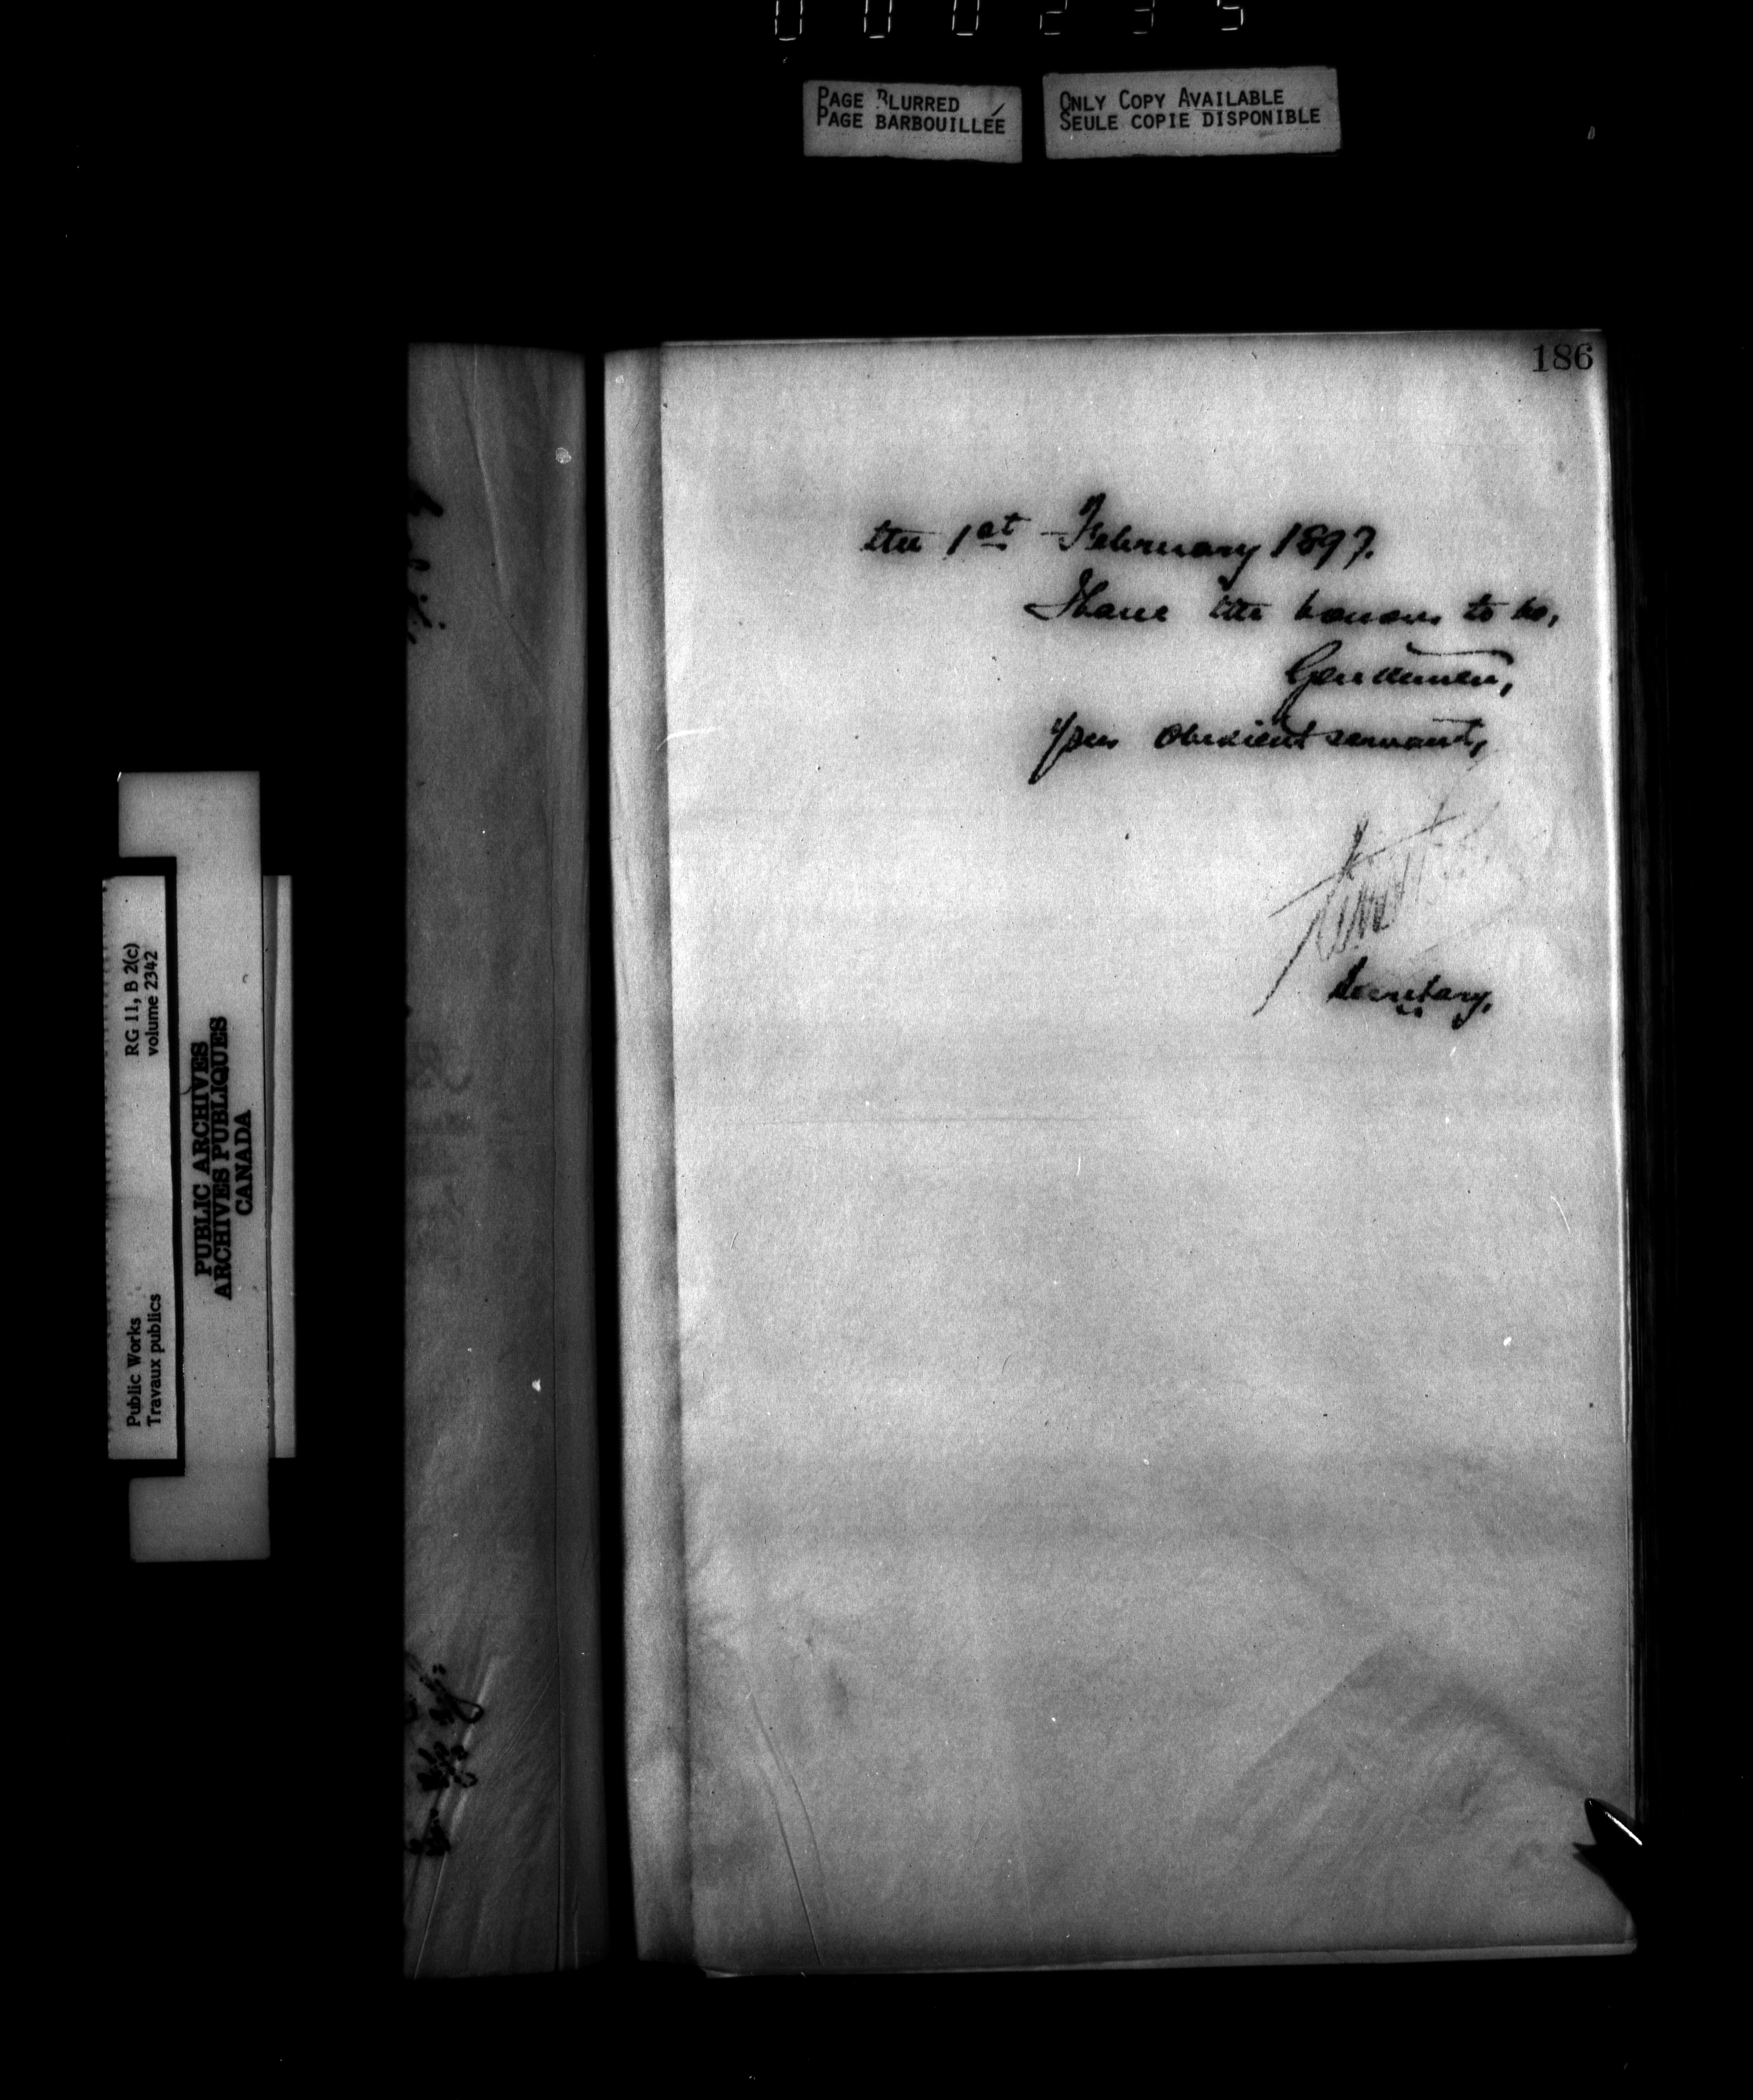 000235
PAGE BLURRED
PAGE BARBOUILLÉE
ONLY COPY AVAILABLE
SEULE COPIE DISPONIBLE
186
the 1st February 1897.
I have the honour to be,
Gentlemen,
Your obedient servant,
Secretary.
RG 11, B 2(c)
volume 2342
Public Works
Travaux publics
PUBLIC ARCHIVES
ARCHIVES PUBLIQUES
CANADA